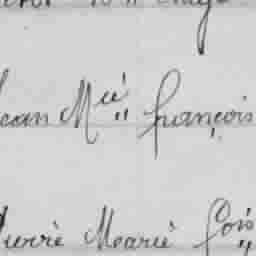 Jean Mie François
Pierre Marie fois